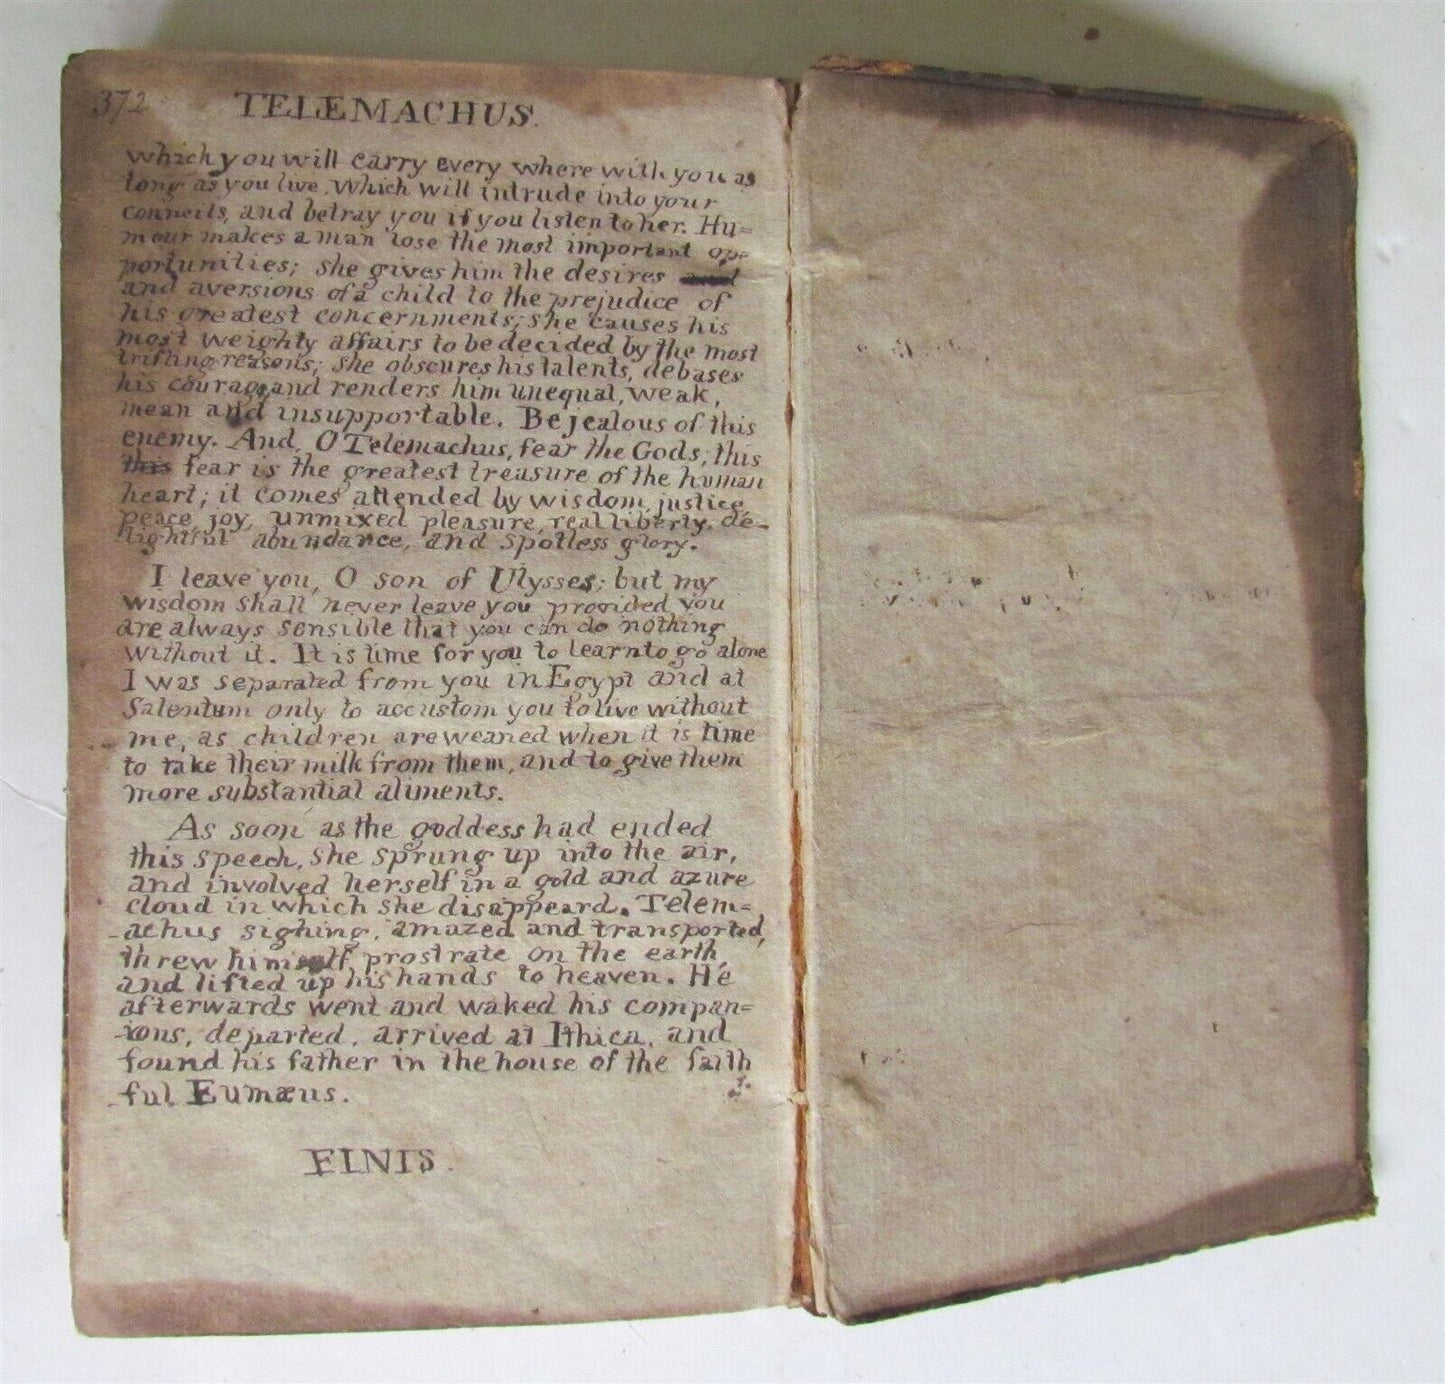 372 TELEMACHUS.
which you will carry every where with you as
long as you live, which will intrude into your
councils, and betray you if you listen to her. Hu=
mour makes a man lose the most important op=
portunities; she gives him the desires and
and aversions of a child to the prejudice of
his greatest concernments; she causes his
most weighty affairs to be decided by the most
trifling reasons; she obscures his talents, debases
his courage, and renders him unequal, weak,
mean and insupportable. Be jealous of this
enemy. And, O Telemachus, fear the Gods; this
this fear is the greatest treasure of the human
heart; it comes attended by wisdom, justice,
peace, joy, unmixed pleasure, real liberty, de-
lightful abundance, and spotless glory.
I leave you, O son of Ulysses; but my
wisdom shall never leave you provided you
are always sensible that you can do nothing
without it. It is time for you to learn to go alone
I was separated from you in Egypt and at
Salentum only to accustom you to live without
me, as children are weaned when it is time
to take their milk from them, and to give them
more substantial aliments.
As soon as the goddess had ended
this speech, she sprung up into the air,
and involved herself in a gold and azure
cloud in which she disappeard. Telem=
achus sighing, amazed and transported,
threw himself prostrate on the earth,
and lifted up his hands to heaven. He
afterwards went and waked his compan=
ions, departed, arrived at Ithica, and
found his father in the house of the faith
ful Eumæus.
FINIS.